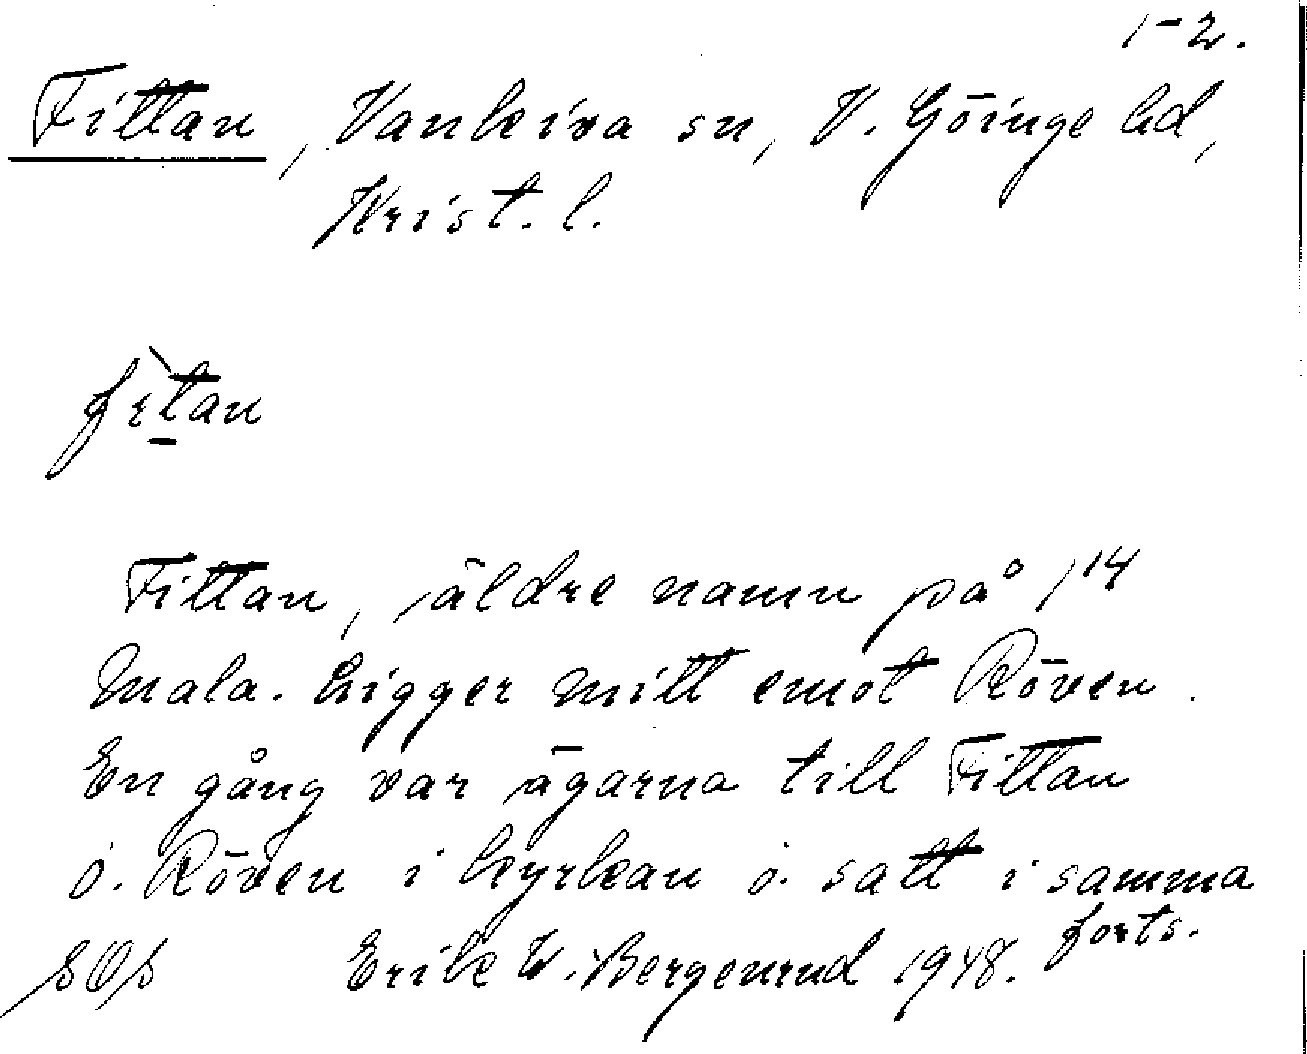 1-2.
Fittan, Vankiva sn, V. Göinge hd,
Krist. l.
fìtan
Fittan, äldre namn på 1¹⁴
Mala. Ligger mitt emot Röven.
En gång var ägarna till Fittan
o. Röven i kyrkan o. satt i samma
forts.
Erik W. Bergenrud 1948.